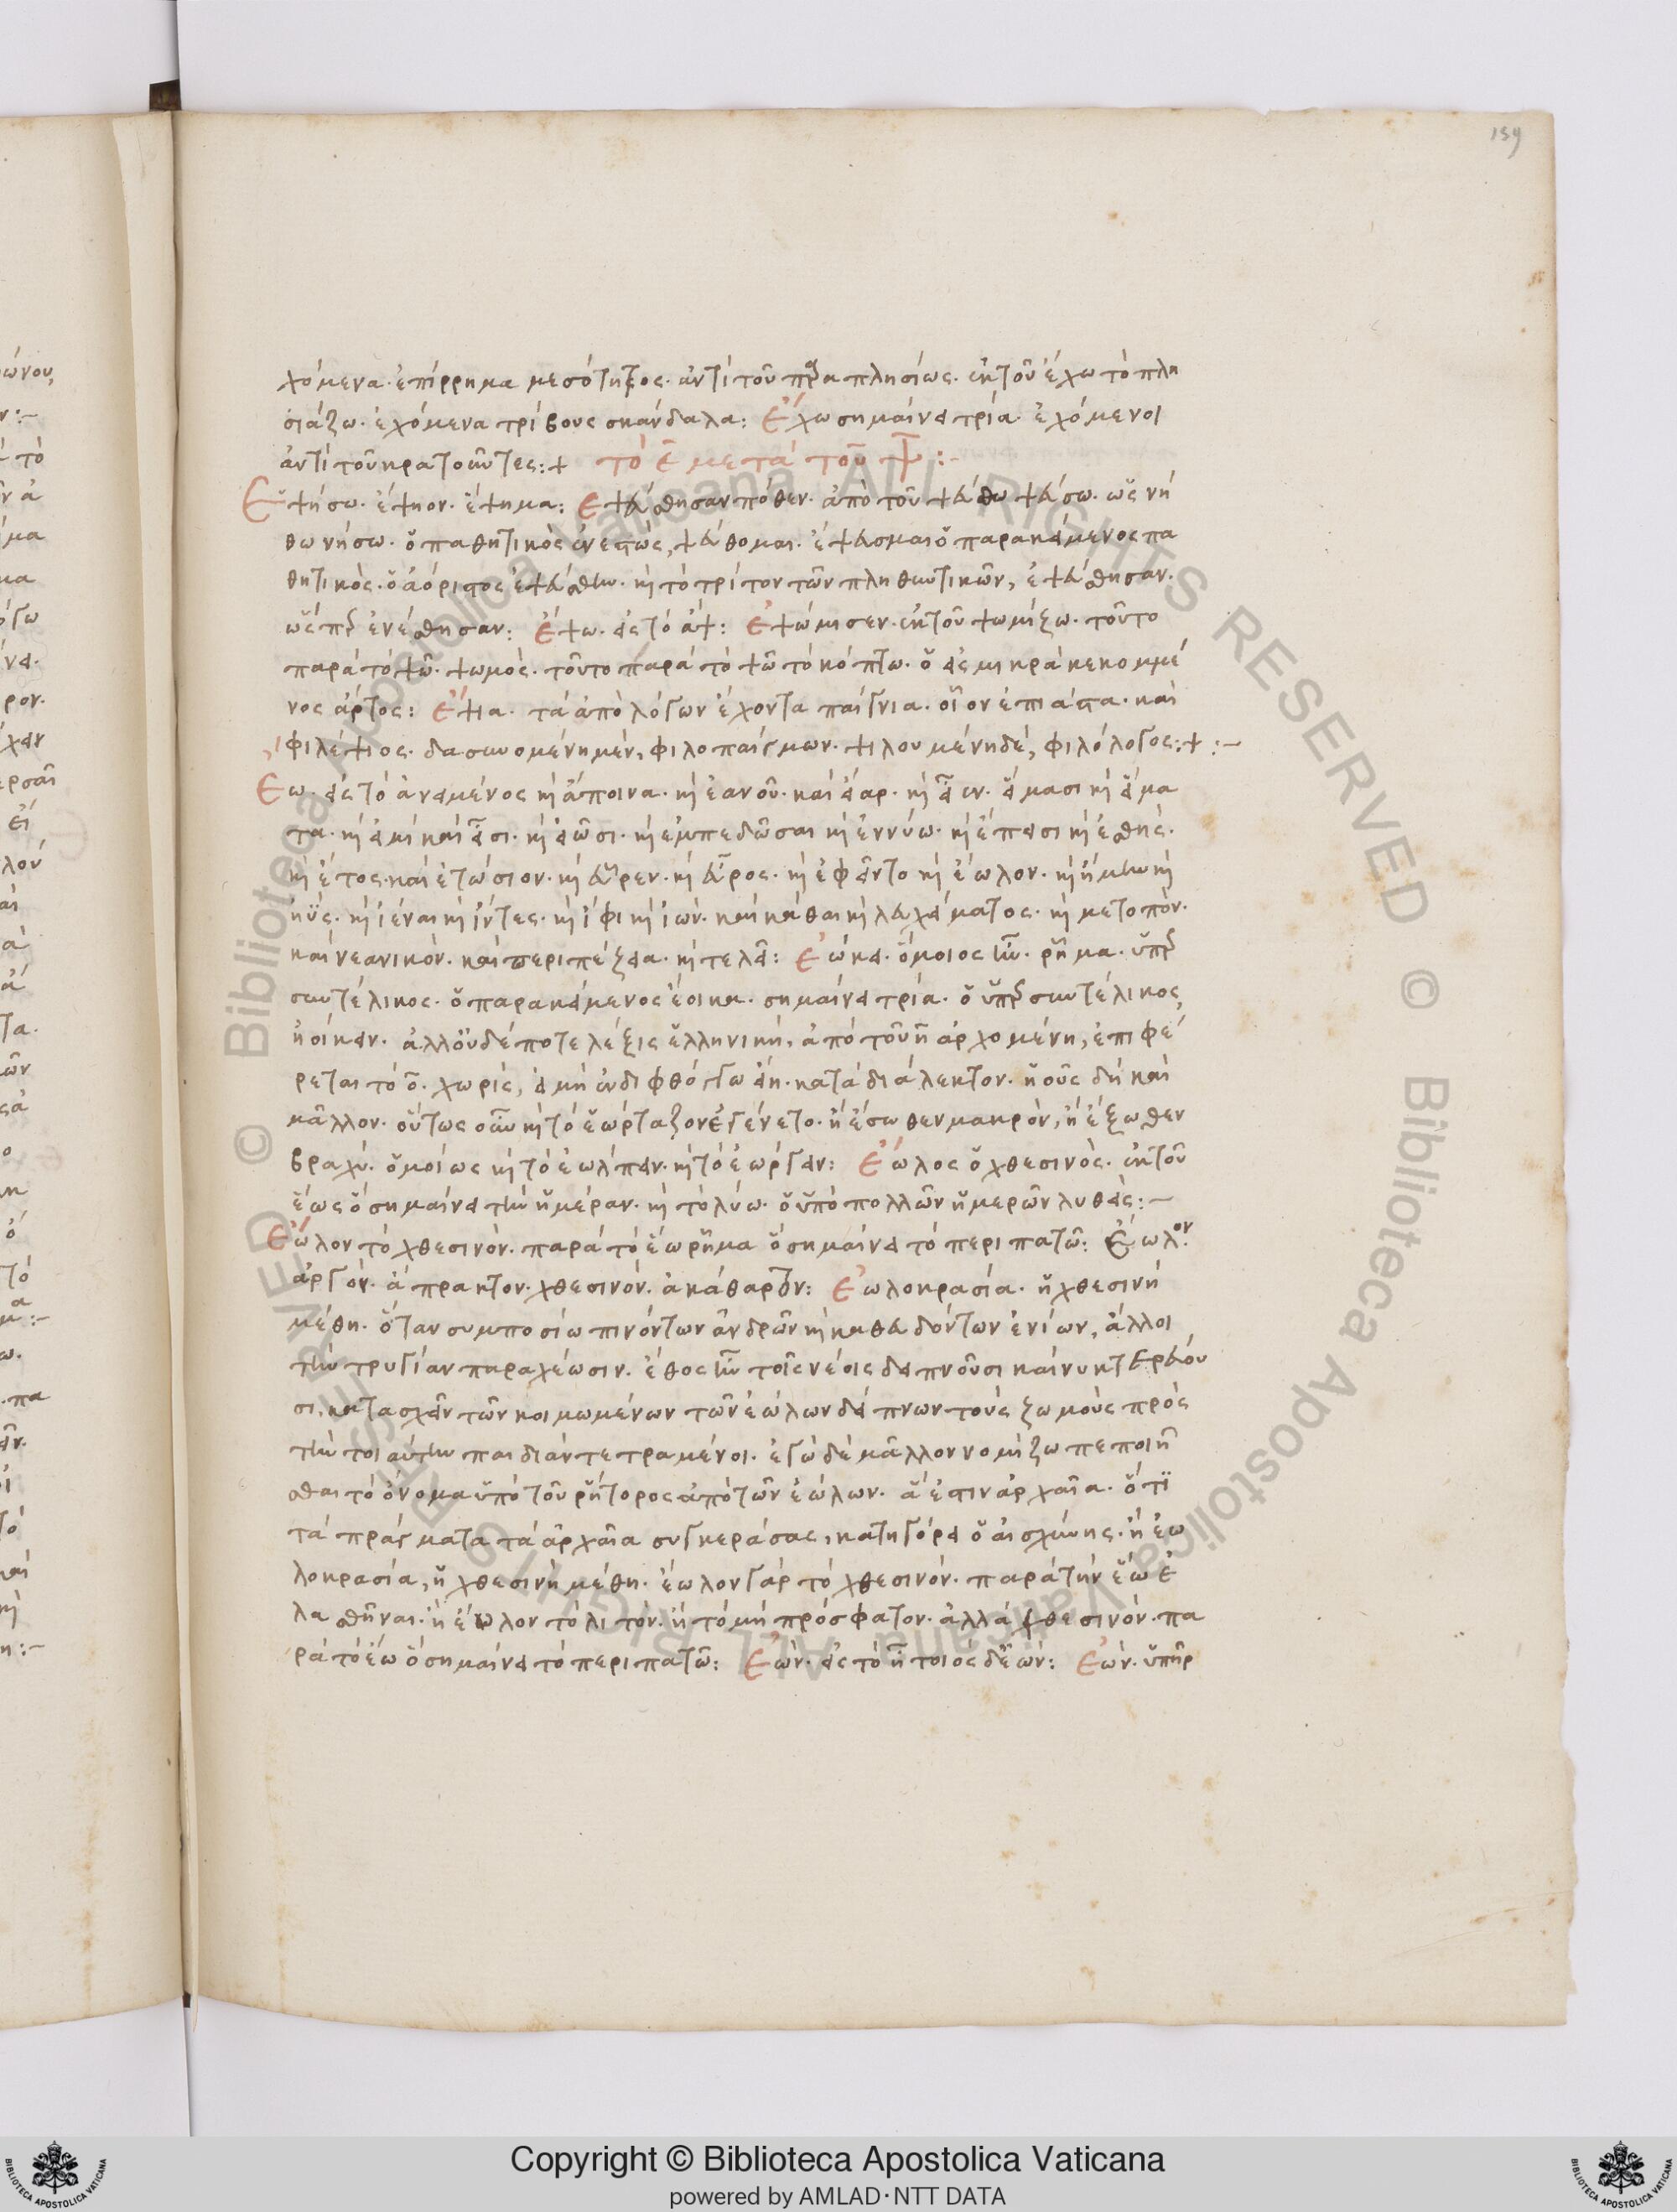 159
χόμενα· ἐπίρρημα μεσότητος· ἀντὶ τοῦ παραπλησίως· ἐκ τοῦ ἔχω τὸ πλη
σιάζω· ἐχόμενα τρίβους σκάνδαλα: Ἔχω σημαίνει τρία· ἐχόμενοι
ἀντὶ τοῦ κρατοῦντες:+ τὸ ε μετὰ τοῦ ψ:
Ἑψήσω· ἕψηον· ἕψημα: Ἐψεύσθησαν πόθεν· ἀπὸ τοῦ ψεύθω ψεύσω· ὡς νή
θω νήσω· ὁ παθητικὸς ἐνεστὼς, ψεύθομαι· ἔψευσμαι ὁ παρακείμενος πα
θητικὸς· ὁ ἀόριστος ἐψεύσθην· κὶ τὸ τρίτον τῶν πληθυντικῶν, ἐψεύσθησαν·
ὥσπερ ἐνέσθησαν: Ἕψω· εἰς τὸ ἅψ: Ἐψώμισεν· ἐκ τοῦ ψωμίζω· τοῦτο
παρὰ τὸ ψῶ· ψωμὸς· τοῦτο παρὰ τὸ ψῶ τὸ κόπτω· ὁ εἰς μικρὰ κεκομμέ
νος ἄρτος: Ἕψια· τὰ ἀπὸ λόγων ἔχοντα παίγνια· οἷον ἔπια ἄττα· καὶ
φιλέψιος· δασυνομένη μὲν, φιλοπαίγμων· ψιλουμένη δὲ, φιλόλογος:+:-
Εω· εἰς τὸ ἀνειμένος κὶ ἄποινα· κὶ ἑανοῦ· καὶ εἴαρ· κὶ εἶεν· εἵμασι κὶ εἵμα
τα· κὶ εἰμὶ καὶ εἶσι· κὶ εἰῶσι· κὶ ἐμπεδῶσαι κὶ ἐννύω· κὶ ἔπεισι κὶ ἐσθής·
κὶ ἔτος· καὶ ἐτώσιον· κὶ εὗρεν· κὶ εὖρος· κὶ ἐφεῖντο κὶ ἕωλον· κὶ ἥμην κὶ
ἠΰς· κὶ ἰέναι κὶ ἰόντες· κὶ ἶφι κὶ ἰών· καὶ κεῖθαι κὶ λεχείματος· κὶ μετοπὸν·
καὶ νεανικόν· καὶ περιπέζεια· κὶ τελεῖ: Ἐώκει· ὅμοιος ἦν· ῥῆμα· ὑπερ
συντέλικος· ὁ παρακείμενος ἔοικα· σημαίνει τρία· ὁ ὑπερσυντέλικος,
ἠοίκειν· ἀλλ' οὐδέποτε λέξις ἑλληνική, ἀπὸ τοῦ η ἀρχομένη, ἐπιφέ
ρεται τὸ ο· χωρὶς, εἰ μὴ ἐν διφθόγγω εἴη· κατὰ διάλεκτον· ἠοῦς δὴ καὶ
μᾶλλον· οὕτως οὖν κὶ τὸ ἑώρταζον ἐγένετο· ἢ ἔσωθεν μακρὸν, ἢ ἔξωθεν
βραχύ· ὁμοίως κὶ τὸ ἐώλπειν· κὶ τὸ ἐώργειν: Ἕωλος ὁ χθεσινὸς· ἐκ τοῦ
ἕως ὃ σημαίνει τὴν ἡμέραν· κὶ τὸ λύω· ὁ ὑπὸ πολλῶν ἡμερῶν λυθείς:-
Ἕωλον τὸ χθεσινόν· παρὰ τὸ ἕω ῥῆμα ὃ σημαίνει τὸ περιπατῶ: Ἕωλον
ἀργὸν· ἄπρακτον· χθεσινόν· ἀκάθαρτον: Ἑωλοκρασία· ἡ χθεσινὴ
μέθη· ὅταν συμποσίω πινόντων ἀνδρῶν κὶ καθευδόντων ἐνίων, ἄλλοι
τὴν τρυγίαν παραχέωσιν· ἔθος ἦν τοῖς νέοις δειπνοῦσι καὶ νυκτερεύου
σι, κατασχεῖν τῶν κοιμωμένων τῶν ἑώλων δείπνων τοὺς ζωμοὺς πρὸς
τὴν τοιαύτην παιδιάν τετραμένοι· ἐγὼ δὲ μᾶλλον νομίζω πεποιῆ
σθαι τὸ ὄνομα ὑπὸ τοῦ ῥήτορος ἀπὸ τῶν ἑώλων· ἅ ἐστιν ἀρχαῖα· ὅτι
τὰ πράγματα τὰ ἀρχαῖα συγκεράσας, κατηγόρει ὁ αἰσχίνης· ἢ ἑω
λοκρασία, ἡ χθεσινὴ μέθη· ἕωλον γὰρ τὸ χθεσινόν· παρὰ τὴν ἕω ἐ
λασθῆναι· ἢ ἕωλον τὸ λιτόν· ἢ τὸ μὴ πρόσφατον· ἀλλὰ χθεσινόν· πα
ρὰ τὸ ἕω ὃ σημαίνει τὸ περιπατῶ: Ἐὼν· εἰς τὸ ἦ τοι ὃς δ' ἐών: Ἐὼν· ὑπῆρ
Copyright © Biblioteca Apostolica Vaticana
powered by AMLAD·NTT DATA